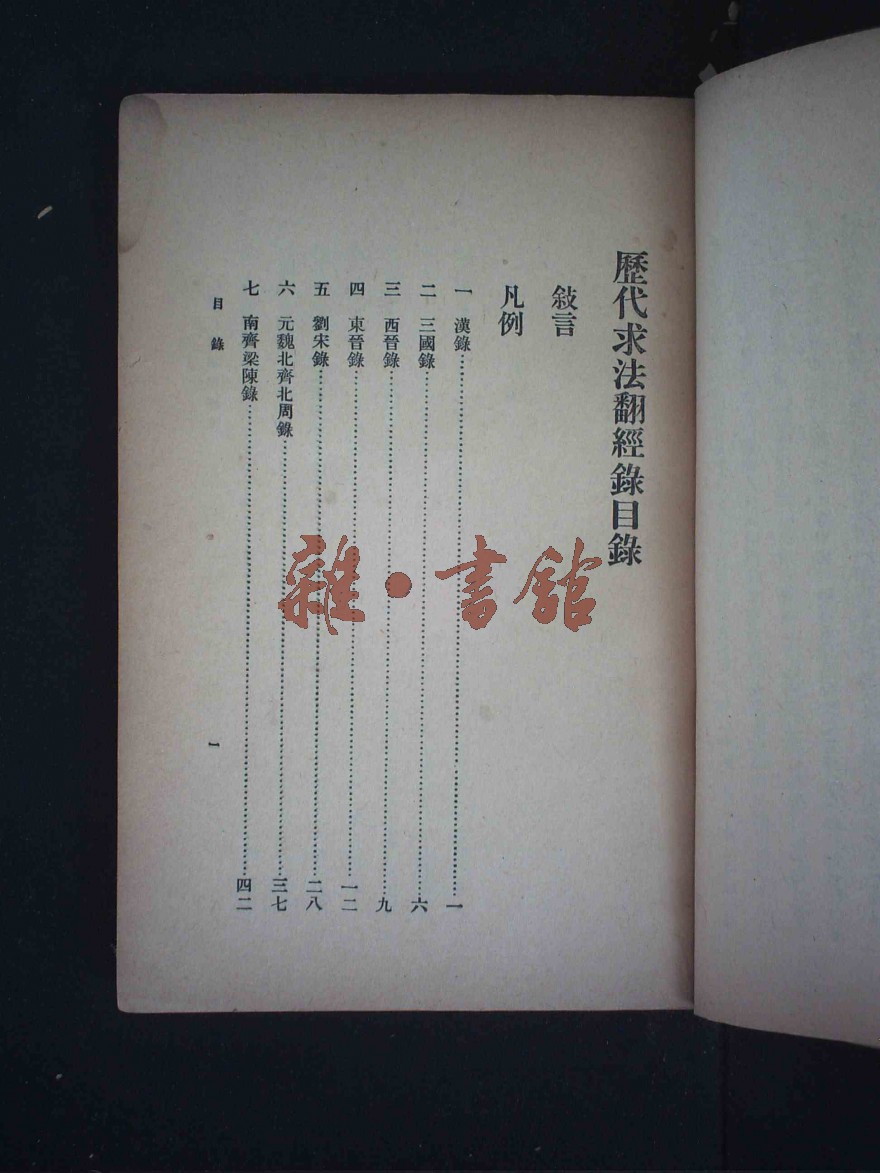 歷代求法翻經錄目錄
敍言
凡例
一 漢錄……一
二 三國錄……六
三 西晉錄……九
四 東晉錄……一二
五 劉宋錄……二八
六 元魏北齊北周錄……三七
七 南齊梁陳錄……四二
目錄 一
雜·書館